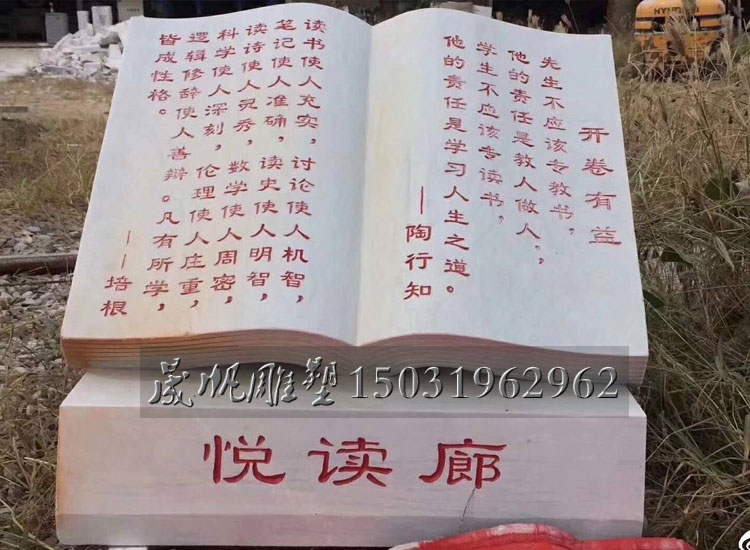 开卷有益
先生不应该专教书,
他的责任是教人做人,
学生不应该专读书,
他的责任是学习人生之道。
——陶行知
读书使人充实,讨论使人机智,
笔记使人准确,读史使人明智,
读诗使人灵秀,数学使人周密,
科学使人深刻,伦理使人庄重,
逻辑修辞使人善辩。凡有所学,
皆成性格。
——培根
晟帆雕塑 15031962962
悦读廊